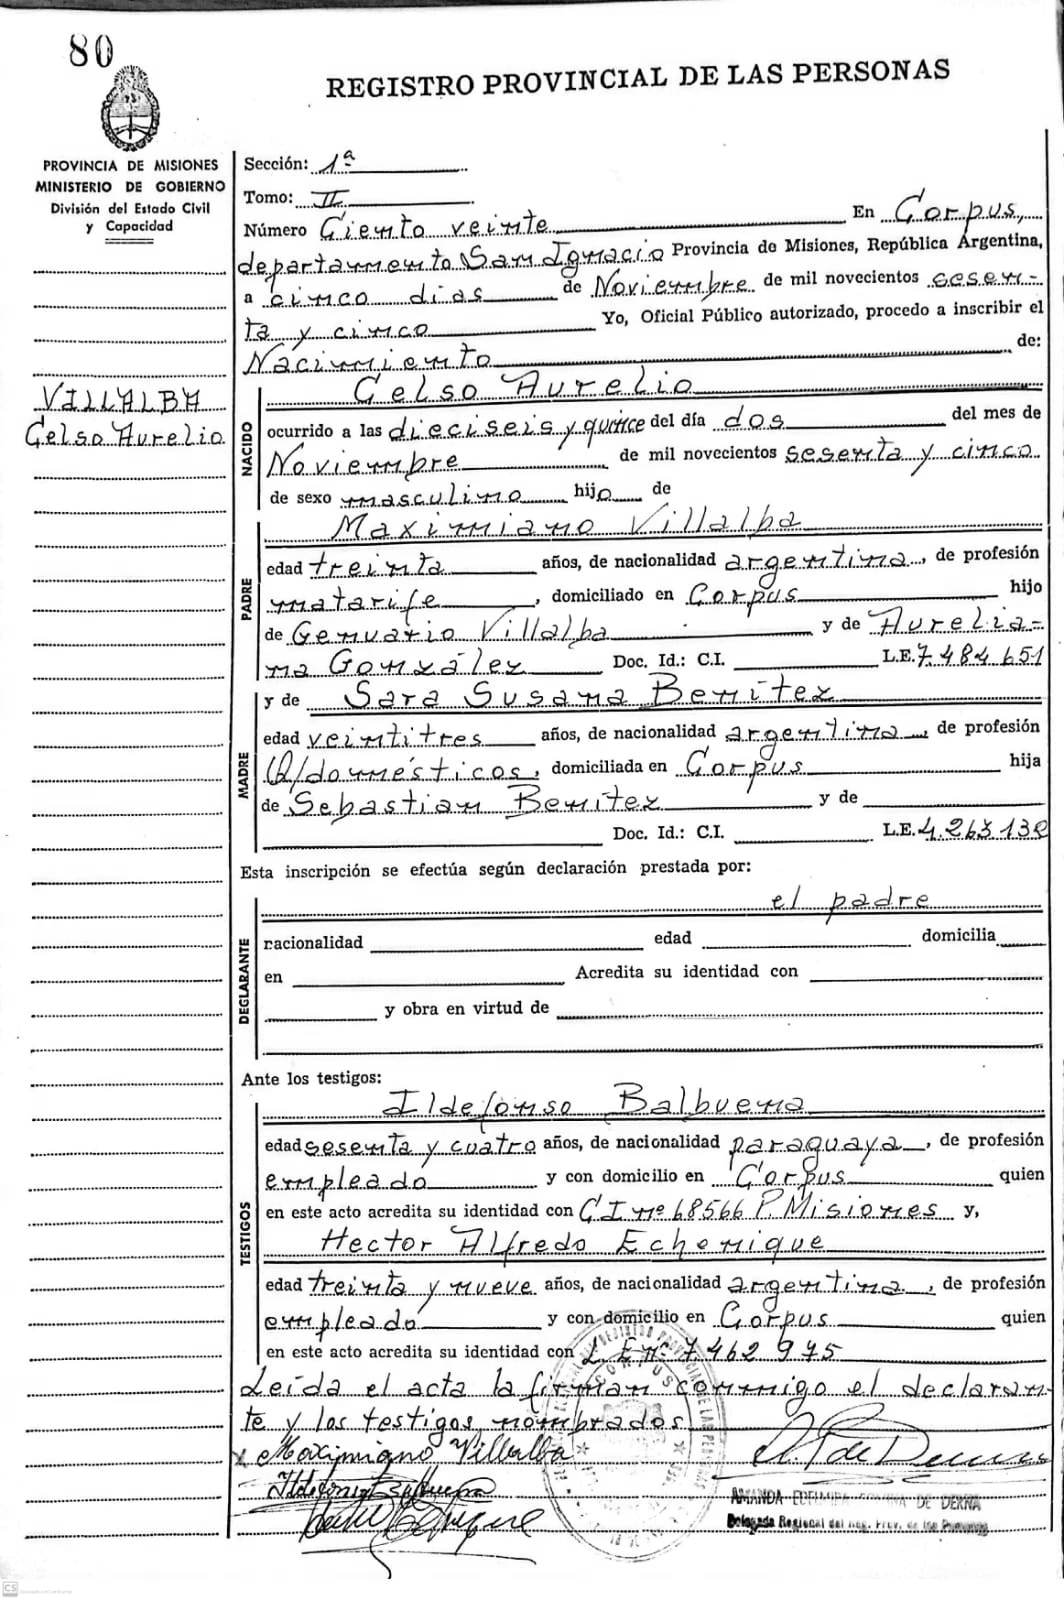 80
REGISTRO PROVINCIAL DE LAS PERSONAS
PROVINCIA DE MISIONES
MINISTERIO DE GOBIERNO
División del Estado Civil
y Capacidad
Sección: 1ª
Tomo: II
Número Ciento veinte En Corpus,
departamento San Ignacio Provincia de Misiones, República Argentina,
a cinco días de Noviembre de mil novecientos sesen-
ta y cinco Yo, Oficial Público autorizado, procedo a inscribir el
Nacimiento de:
VILLALBA
Celso Aurelio
NACIDO
Celso Aurelio
ocurrido a las dieciseis y quince del día dos del mes de
Noviembre de mil novecientos sesenta y cinco
de sexo masculino hijo de
Maximiano Villalba
PADRE
edad treinta años, de nacionalidad argentina, de profesión
matarife, domiciliado en Corpus hijo
de Genuario Villalba y de Aurelia-
na González Doc. Id.: C.I. L.E. 7.484.651
y de Sara Susana Benítez
MADRE
edad veintitres años, de nacionalidad argentina, de profesión
Q/domésticos, domiciliada en Corpus hija
de Sebastian Benítez y de
Doc. Id.: C.I. L.E. 4.263.132
Esta inscripción se efectúa según declaración prestada por:
el padre
DECLARANTE
nacionalidad edad domicilia
en Acredita su identidad con
y obra en virtud de
Ante los testigos:
Ildefonso Balbuena
TESTIGOS
edad sesenta y cuatro años, de nacionalidad paraguaya, de profesión
empleado y con domicilio en Corpus quien
en este acto acredita su identidad con C I nº 68566 P. Misiones y,
Hector Alfredo Echenique
edad treinta y nueve años, de nacionalidad argentina, de profesión
empleado y con domicilio en Corpus quien
en este acto acredita su identidad con L. E nº 7.462.975
Leída el acta la firman conmigo el declaran-
te y los testigos nombrados
x Maximiano Villalba
AMANDA DE DERNA
Delegada Regional del Reg. Prov. de las Personas
CORPUS
CS